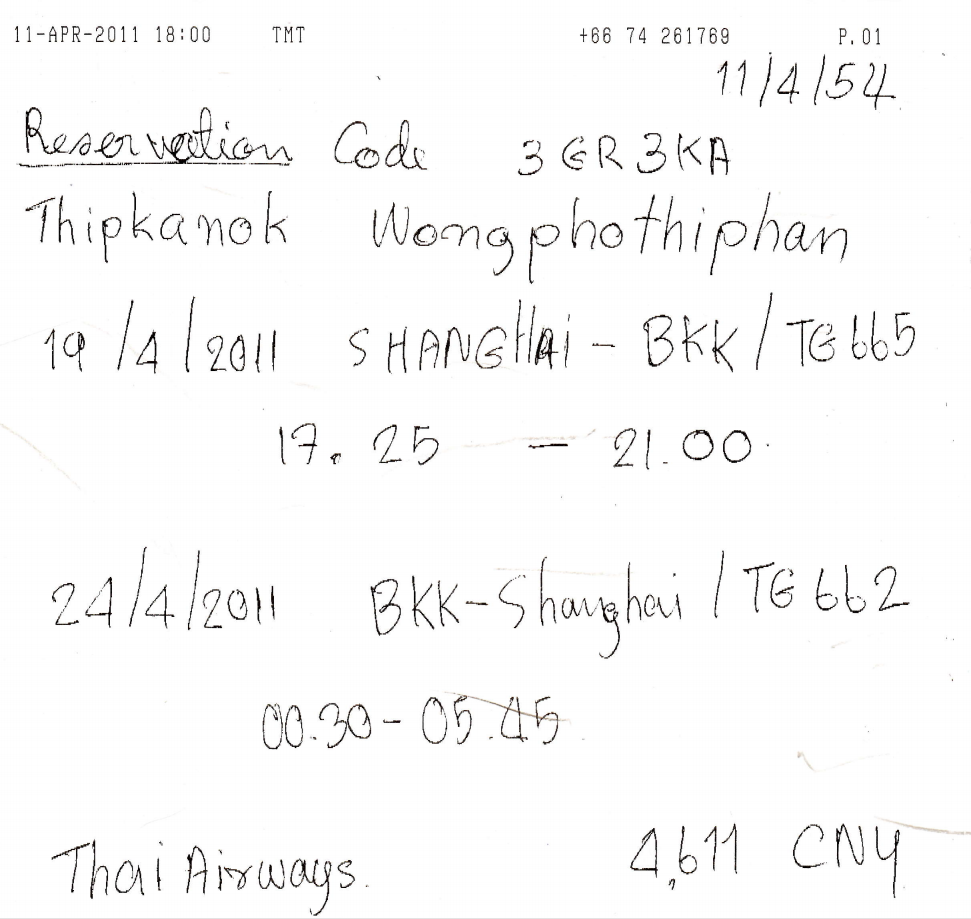 11-APR-2011 18:00 TMT +66 74 261769 P.01
11/4/54
Reservation Code 3GR3KA
Thipkanok Wongphothiphan
19/4/2011 SHANGHAi - BKK / TG 665
17.25 - 21.00
24/4/2011 BKK-Shanghai / TG 662
00.30 - 05.45
Thai Airways. 4,611 CNY